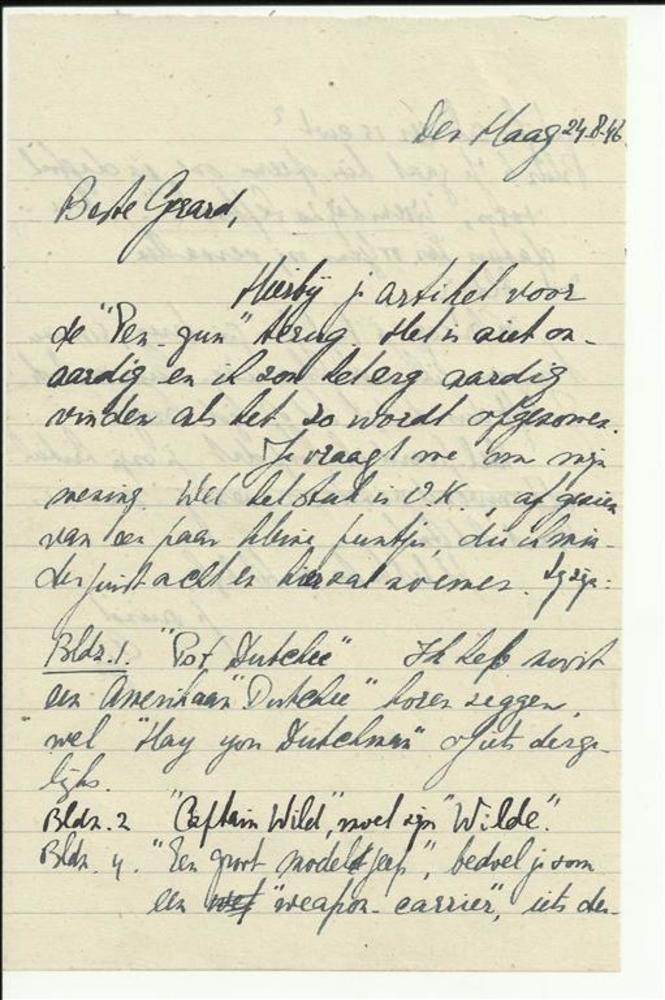 Den Haag 24-8-46.
Beste Gerard,
Hierbij je artikel voor
de "Pen-gun" terug. Het is niet on-
aardig en ik zou het erg aardig
vinden als het zo wordt opgenomen.
Je vraagt me om mijn
mening. Wel het stuk is O.K., afgezien
van een paar kleine puntjes, die ik min-
der juist acht en hier zal noemen. Zij zijn:
Bldz. 1. "Pot Dutchie" Ik heb nooit
een Amerikaan "Dutchie" horen zeggen,
wel "Hay you Dutchman" of iets derge-
lijks.
Bldz. 2 "Captain Wild", moet zijn "Wilde".
Bldz. 4. "Een groot model jeep", bedoel je soms
een "weapon-carrier", iets der-